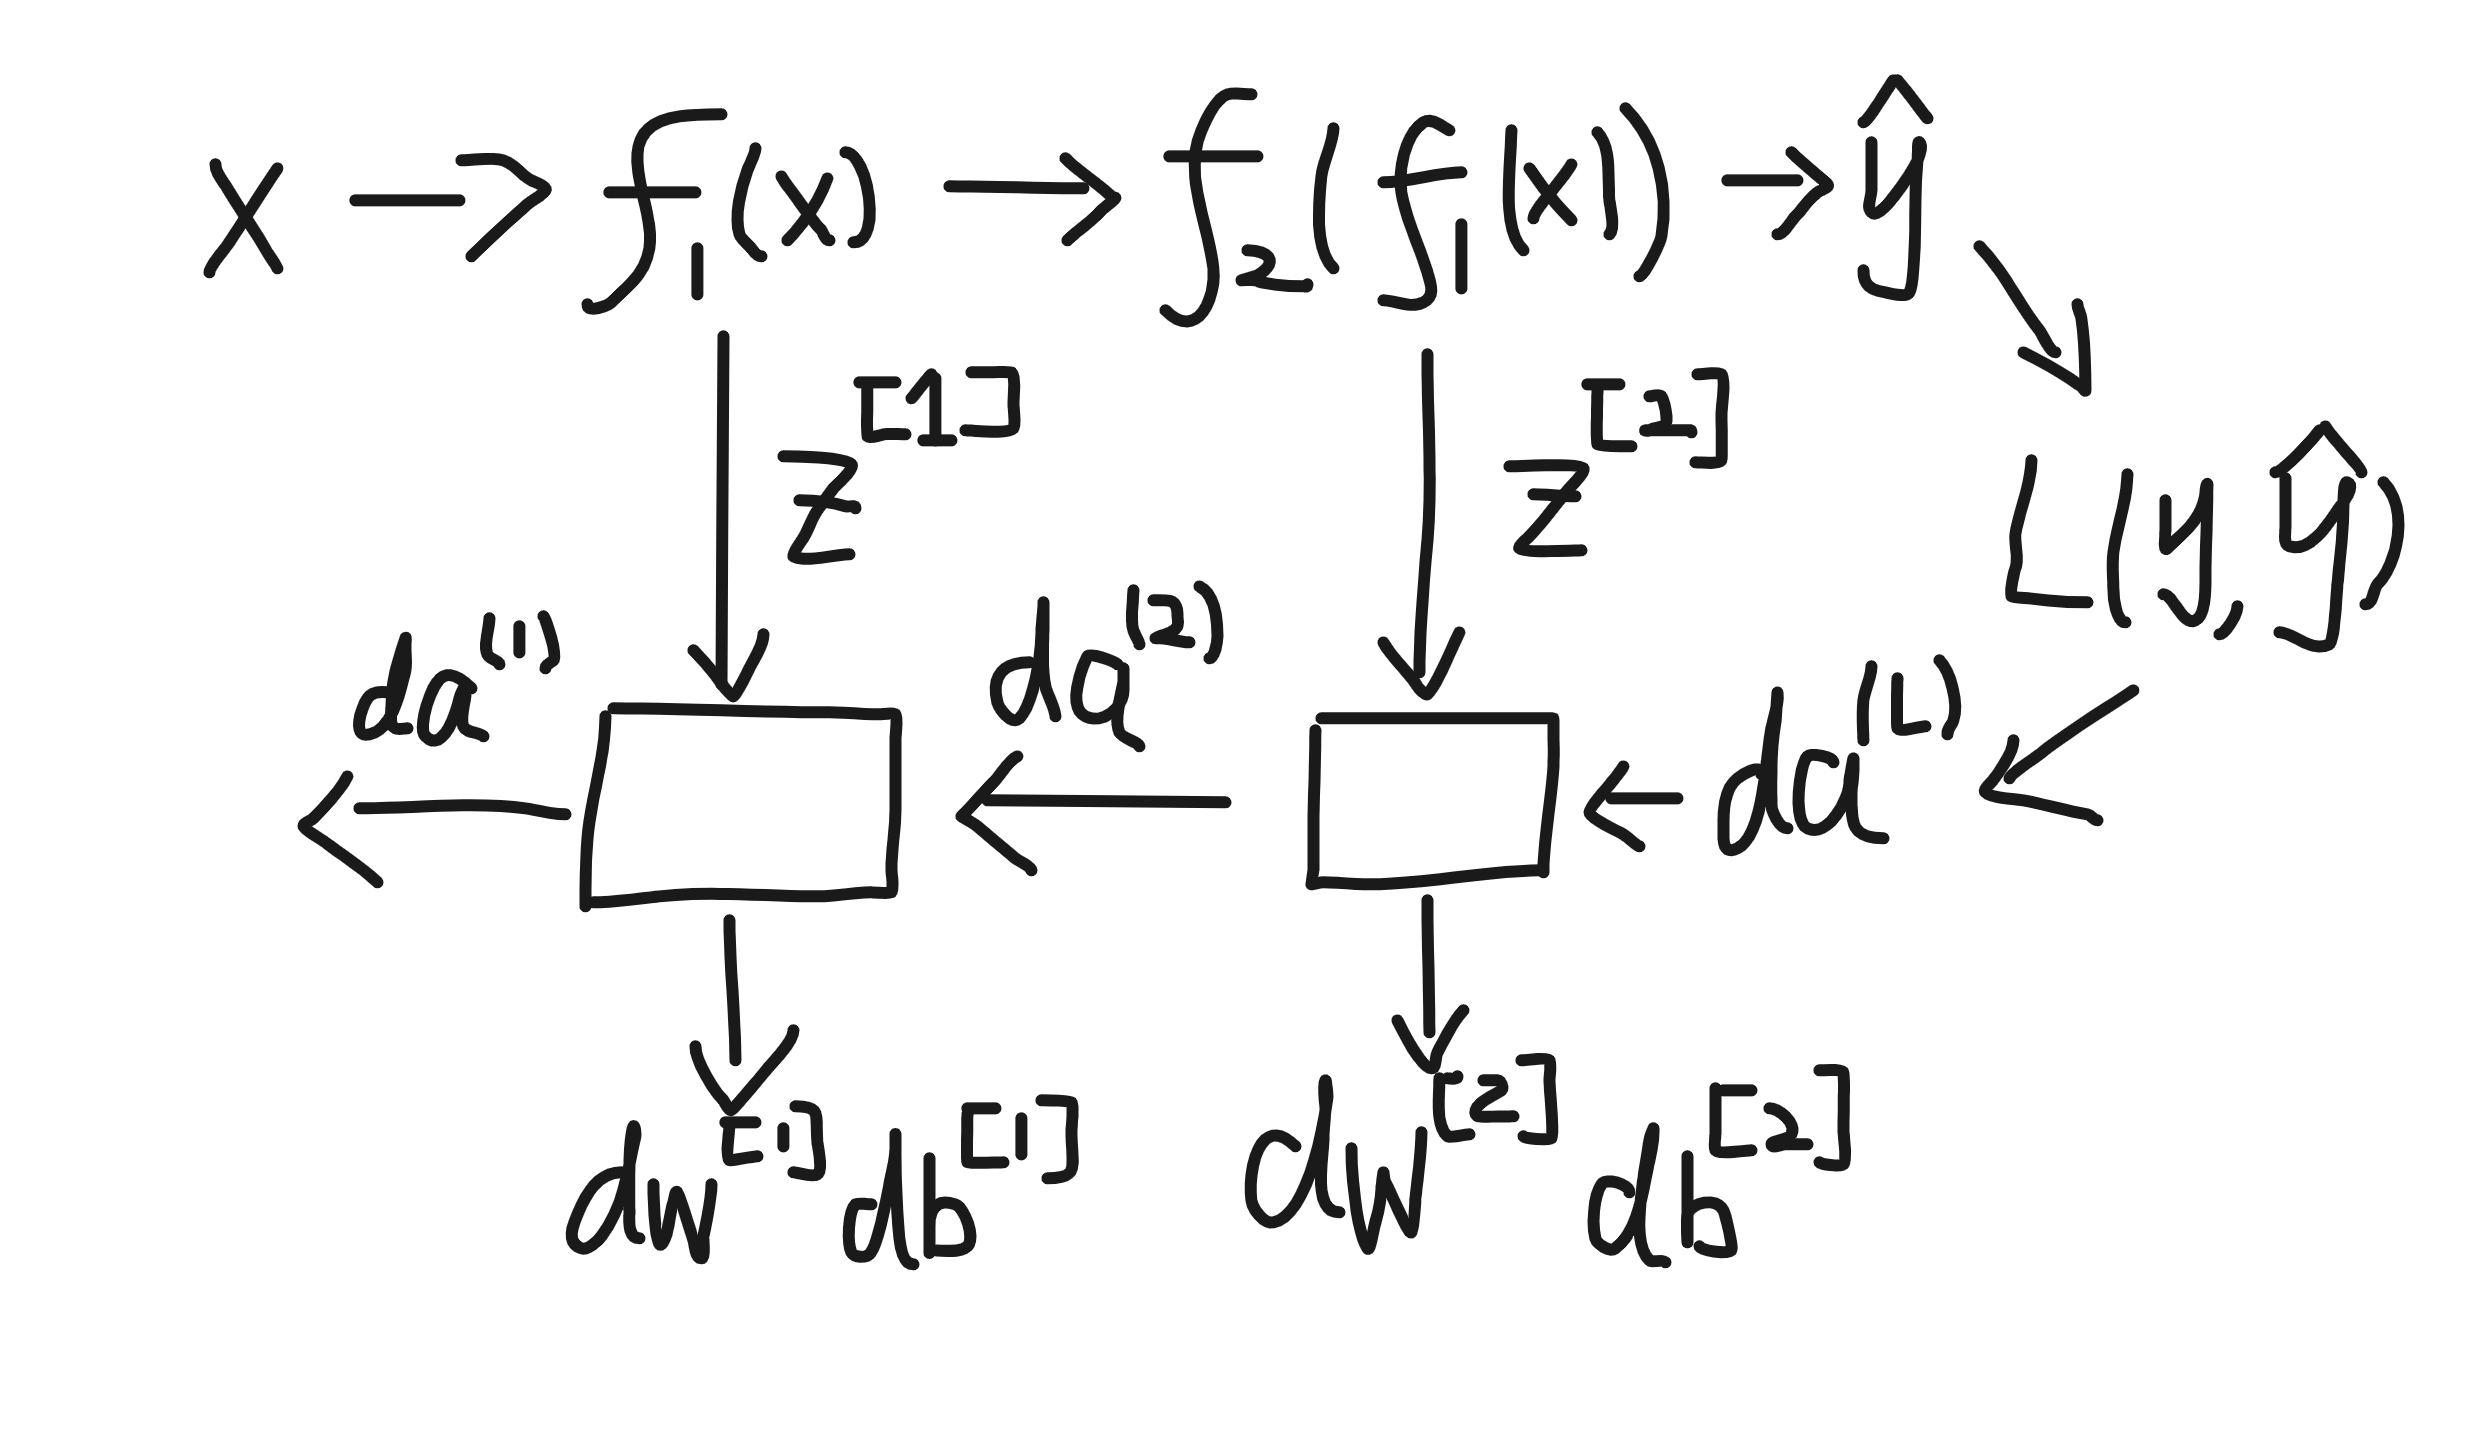 x → f₁(x) → f₂(f₁(x)) → ŷ
z^[1] z^[2] L(y, ŷ)
da^(1) da^(2) da^(L)
dw^[1] db^[1] dw^[2] db^[2]